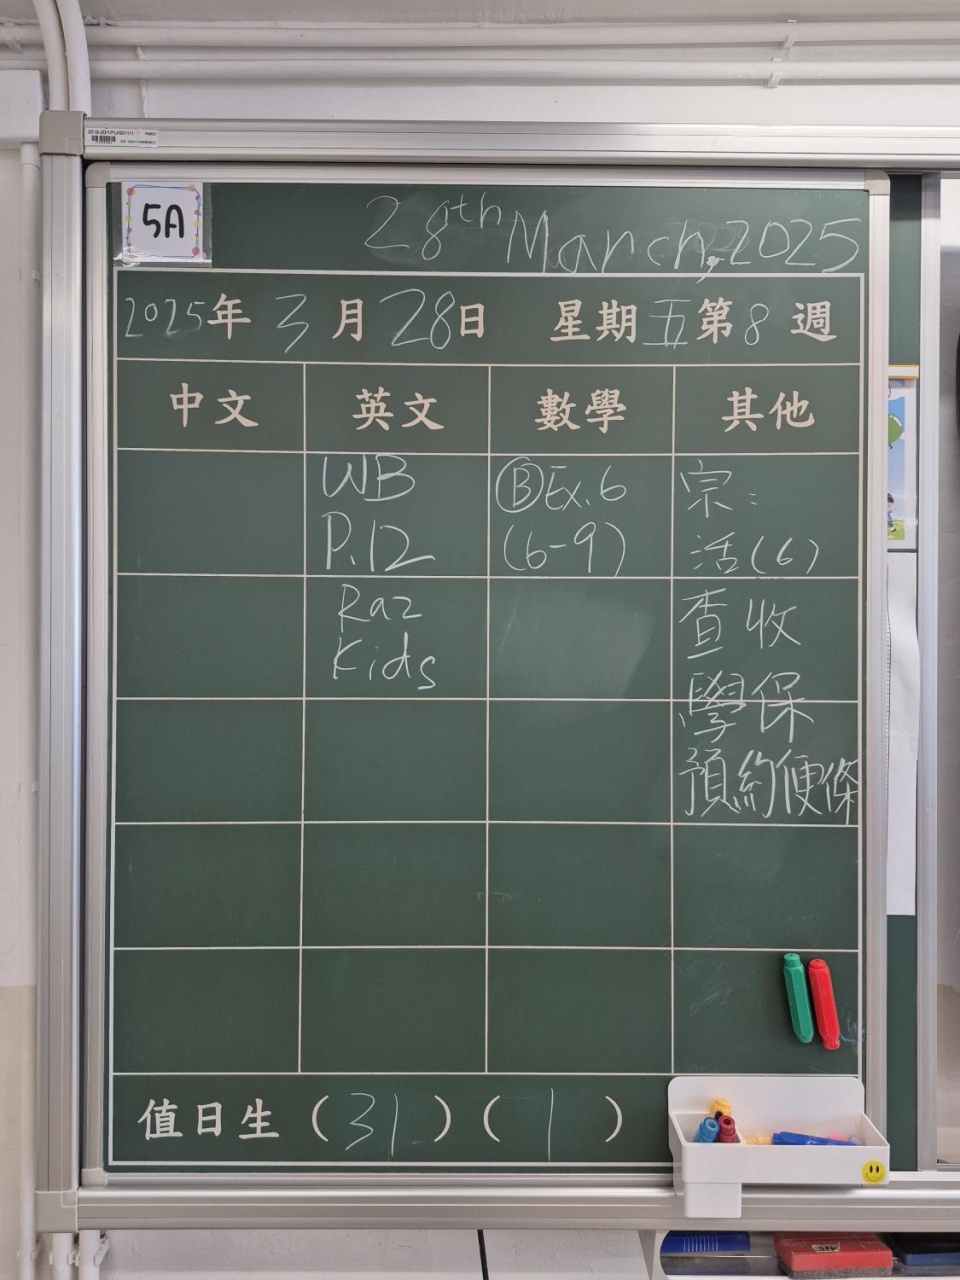 5A
28th March, 2025
2025年 3月28日 星期五第8週
中文 英文 數學 其他
WB
P.12
Ⓑ Ex.6
(6-9)
宗:
活(6)
Raz
Kids
查收
學保
預約便條
值日生 (31) (1)